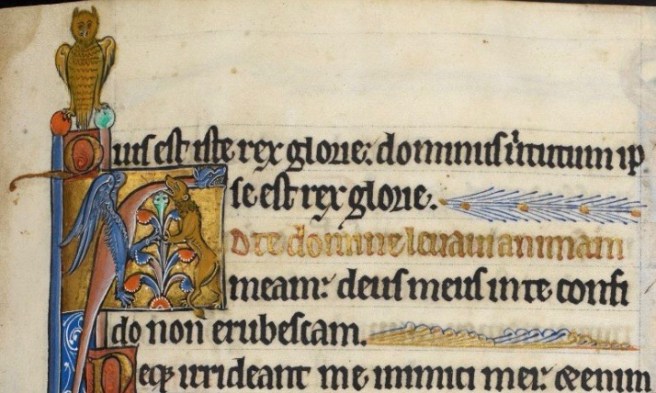 Quis est iste rex glorie: dominus uirtutum ip
se est rex glorie.
Ad te domine leuaui animam
meam: deus meus in te confi
do non erubescam.
Neq; irrideant me inimici mei: etenim